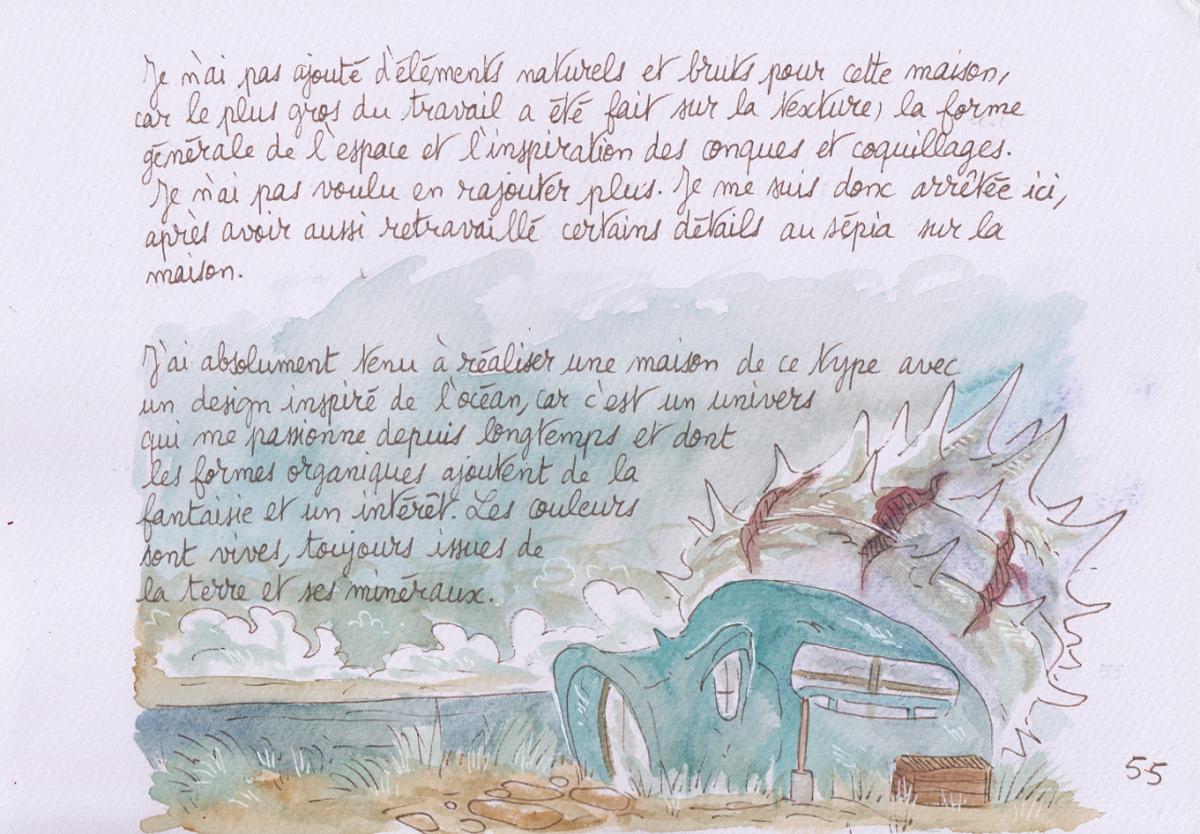 Je n'ai pas ajouté d'éléments naturels et bruts pour cette maison,
car le plus gros du travail a été fait sur la texture, la forme
générale de l'espace et l'inspiration des conques et coquillages.
Je n'ai pas voulu en rajouter plus. Je me suis donc arrêtée ici,
après avoir aussi retravaillé certains détails au sépia sur la
maison.
J'ai absolument tenu à réaliser une maison de ce type avec
un design inspiré de l'océan, car c'est un univers
qui me passionne depuis longtemps et dont
les formes organiques ajoutent de la
fantaisie et un intérêt. Les couleurs
sont vives, toujours issues de
la terre et ses minéraux.
55
55